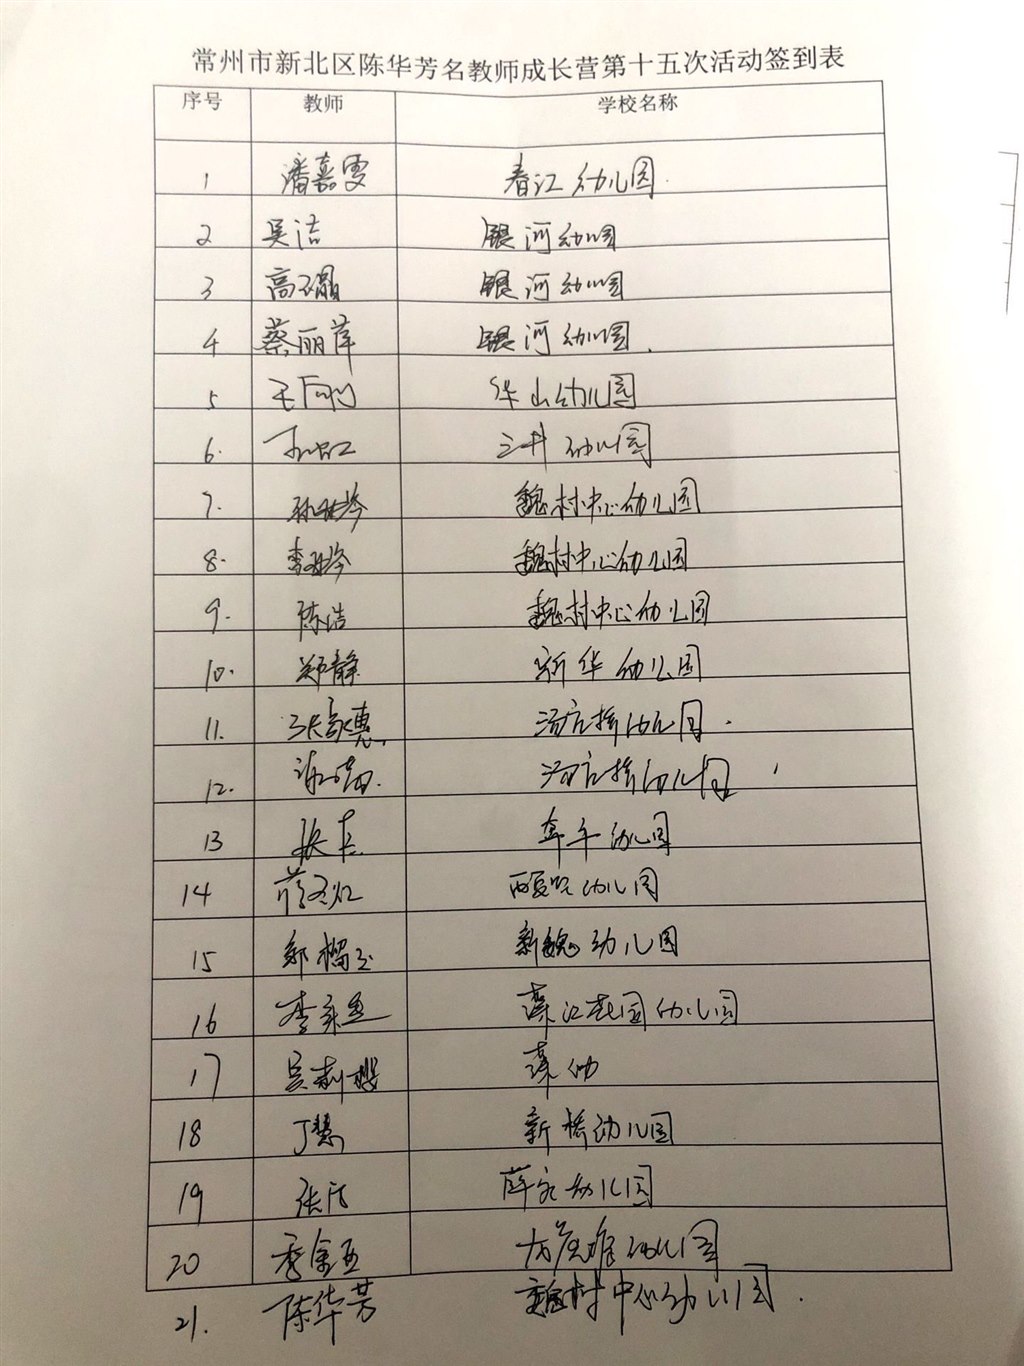 常州市新北区陈华芳名教师成长营第十五次活动签到表
序号 教师 学校名称
1 潘嘉雯 春江幼儿园
2 吴洁 银河幼儿园
3 高 银河幼儿园
4 蔡丽萍 银河幼儿园
5 王 华山幼儿园
6. 三井幼儿园
7. 孙 魏村中心幼儿园
8. 李 魏村中心幼儿园
9. 陈浩 魏村中心幼儿园
10. 郑静 新华幼儿园
11. 张 汤庄桥幼儿园
12. 谢 汤庄桥幼儿园
13 张 奔牛幼儿园
14 薛 幼儿园
15 郑榴玉 新魏幼儿园
16 李 藻江花园幼儿园
17 吴莉樱 藻幼
18 丁慧 新桥幼儿园
19 张 薛家幼儿园
20 季金亚 幼儿园
21. 陈华芳 魏村中心幼儿园.